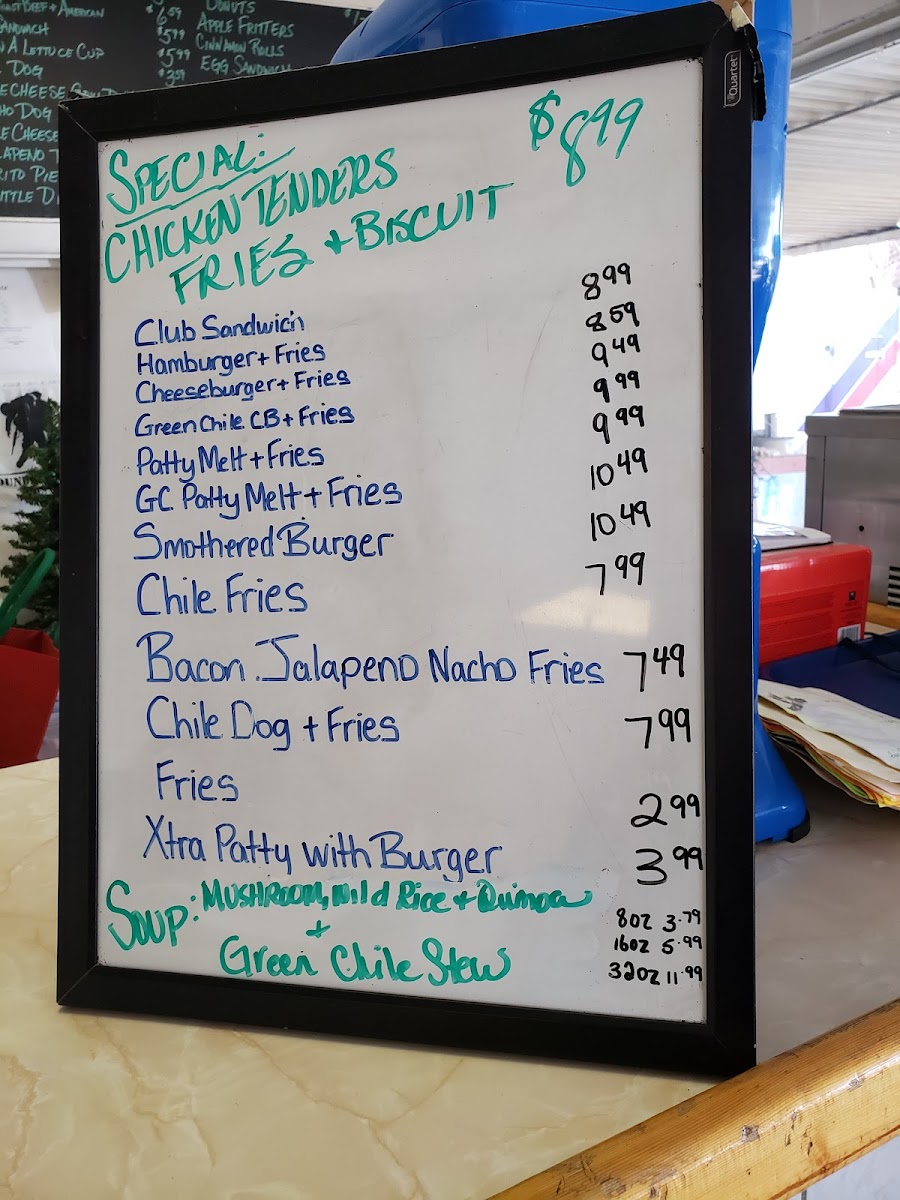 DONUTS
APPLE FRITTERS
CINNAMON ROLLS
EGG SANDWICH
ROAST BEEF + AMERICAN
SANDWICH $6.59
N A LETTUCE CUP $5.99
DOG $3.59
E CHEESE
HO DOG
E CHEESE
APENO
RITO PIE
Quartet
SPECIAL: $8.99
CHICKEN TENDERS
FRIES + BISCUIT
Club Sandwich 8.99
Hamburger + Fries 8.59
Cheeseburger + Fries 9.49
Green Chile CB + Fries 9.99
Patty Melt + Fries 9.99
GC Patty Melt + Fries 10.49
Smothered Burger 10.49
Chile Fries 7.99
Bacon Jalapeno Nacho Fries 7.49
Chile Dog + Fries 7.99
Fries 2.99
Xtra Patty with Burger 3.99
SOUP: MUSHROOM, Wild Rice + Quinoa 8oz 3.79
+ 16oz 5.99
Green Chile Stew 32oz 11.99